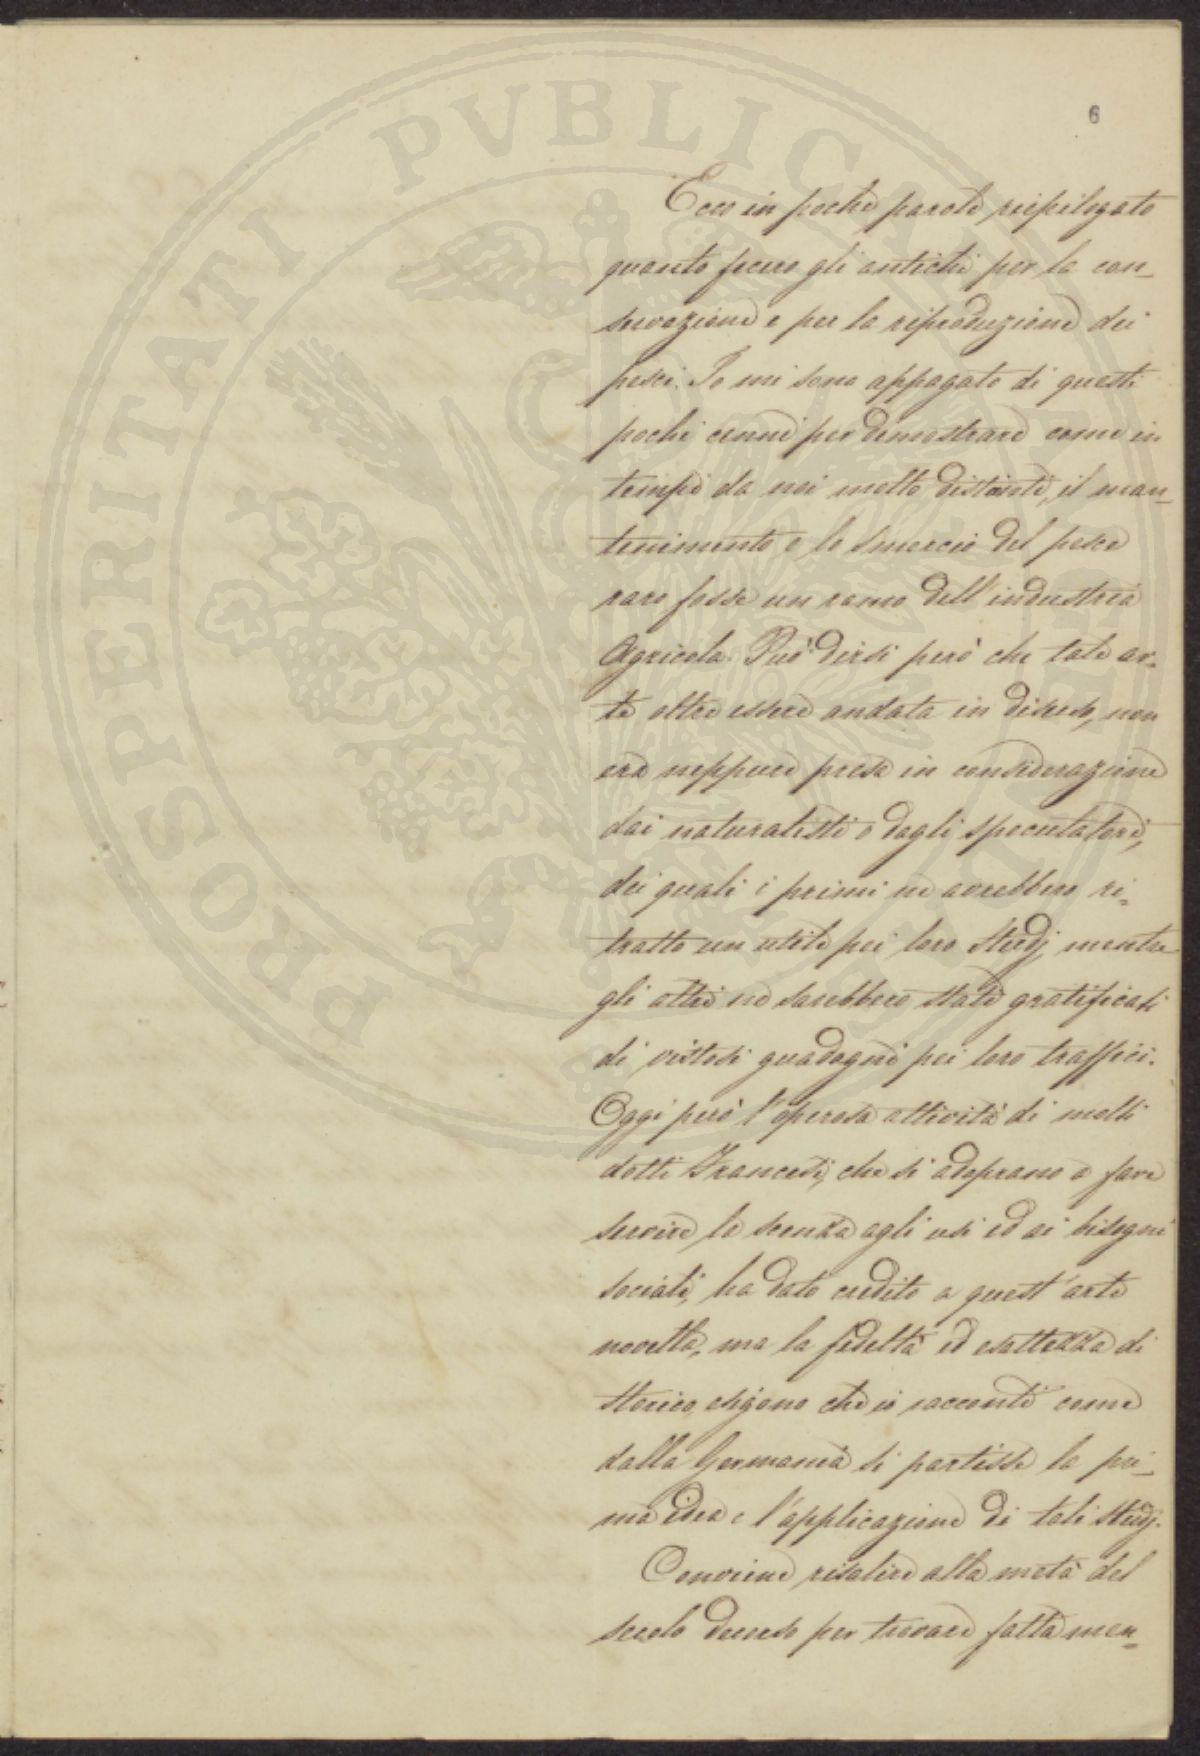 PROSPERITATI PVBLICAE
6
Ecco in poche parole riepilogato
quanto fecero gli antichi per la con_
servazione e per la riproduzione dei
pesci. Io mi sono appagato di questi
pochi cenni per dimostrare come in
tempi da noi molto distanti, il man_
tenimento e lo smercio del pesce
raro fosse un ramo dell'industria
Agricola. Può dirsi però che tale ar_
te oltre essere andata in disuso, non
era neppure presa in considerazione
dai naturalisti o dagli speculatori,
dei quali i primi ne avrebbero ri_
tratto un utile pei loro studj, mentre
gli altri ne sarebbero stati gratificati
di vistosi guadagni pei loro traffici.
Oggi però l'operosa attività di molti
dotti Francesi, che si adoprano a fare
servire la scienza agli usi ed ai bisogni
sociali, ha dato credito a quest'arte
novella, ma la fedeltà ed esattezza di
storico, esigono che io racconti come
dalla Germania si partisse la pri_
ma idea e l'applicazione di tali studj.
Conviene risalire alla metà del
secolo decorso per trovare fatta men_